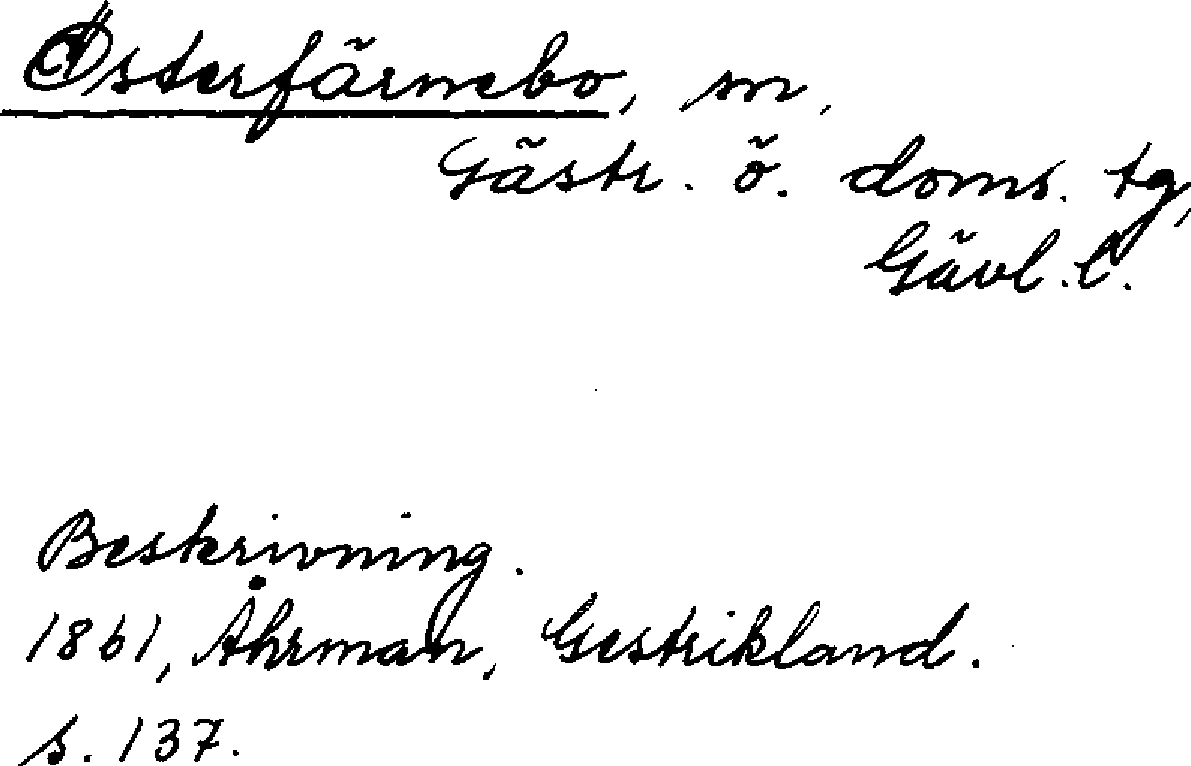 Österfärnebo, sn,
Gästr. ö. doms. tg,
Gävl. l.
Beskrivning.
1861, Åhrman, Gestrikland.
s. 137.